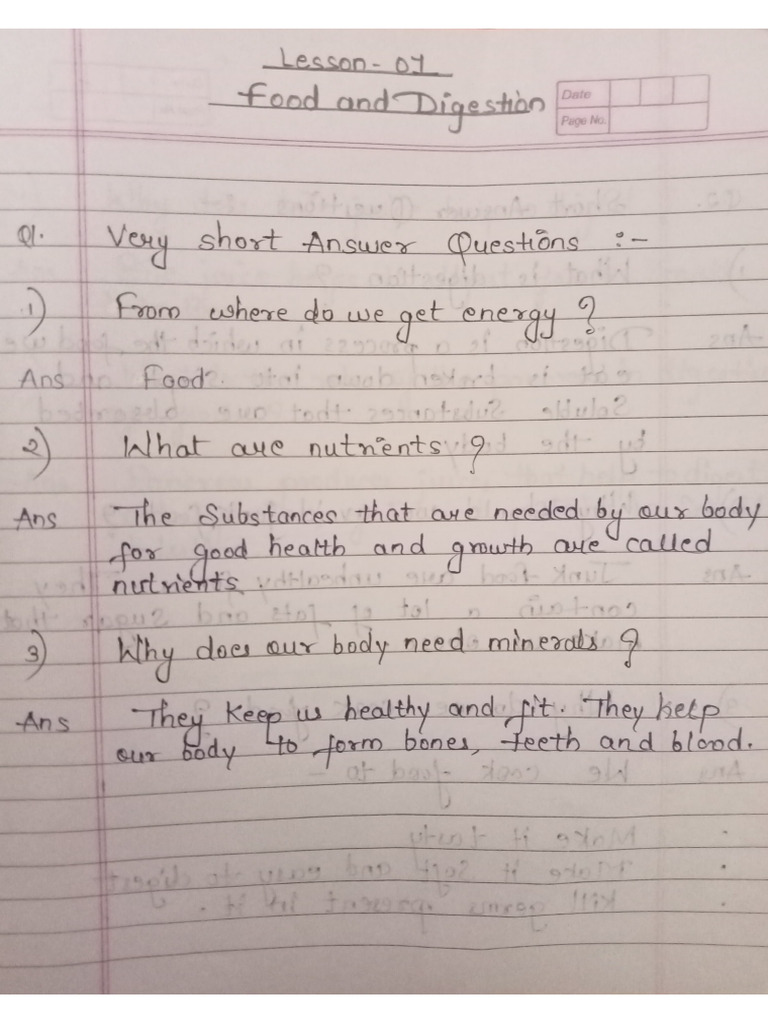 Lesson - 01
Food and Digestion
Date
Page No.
Q1. Very short Answer Questions :-
1) From where do we get energy?
Ans Food.
2) What are nutrients?
Ans The Substances that are needed by our body
for good health and growth are called
nutrients.
3) Why does our body need minerals?
Ans They keep us healthy and fit. They help
our body to form bones, teeth and blood.